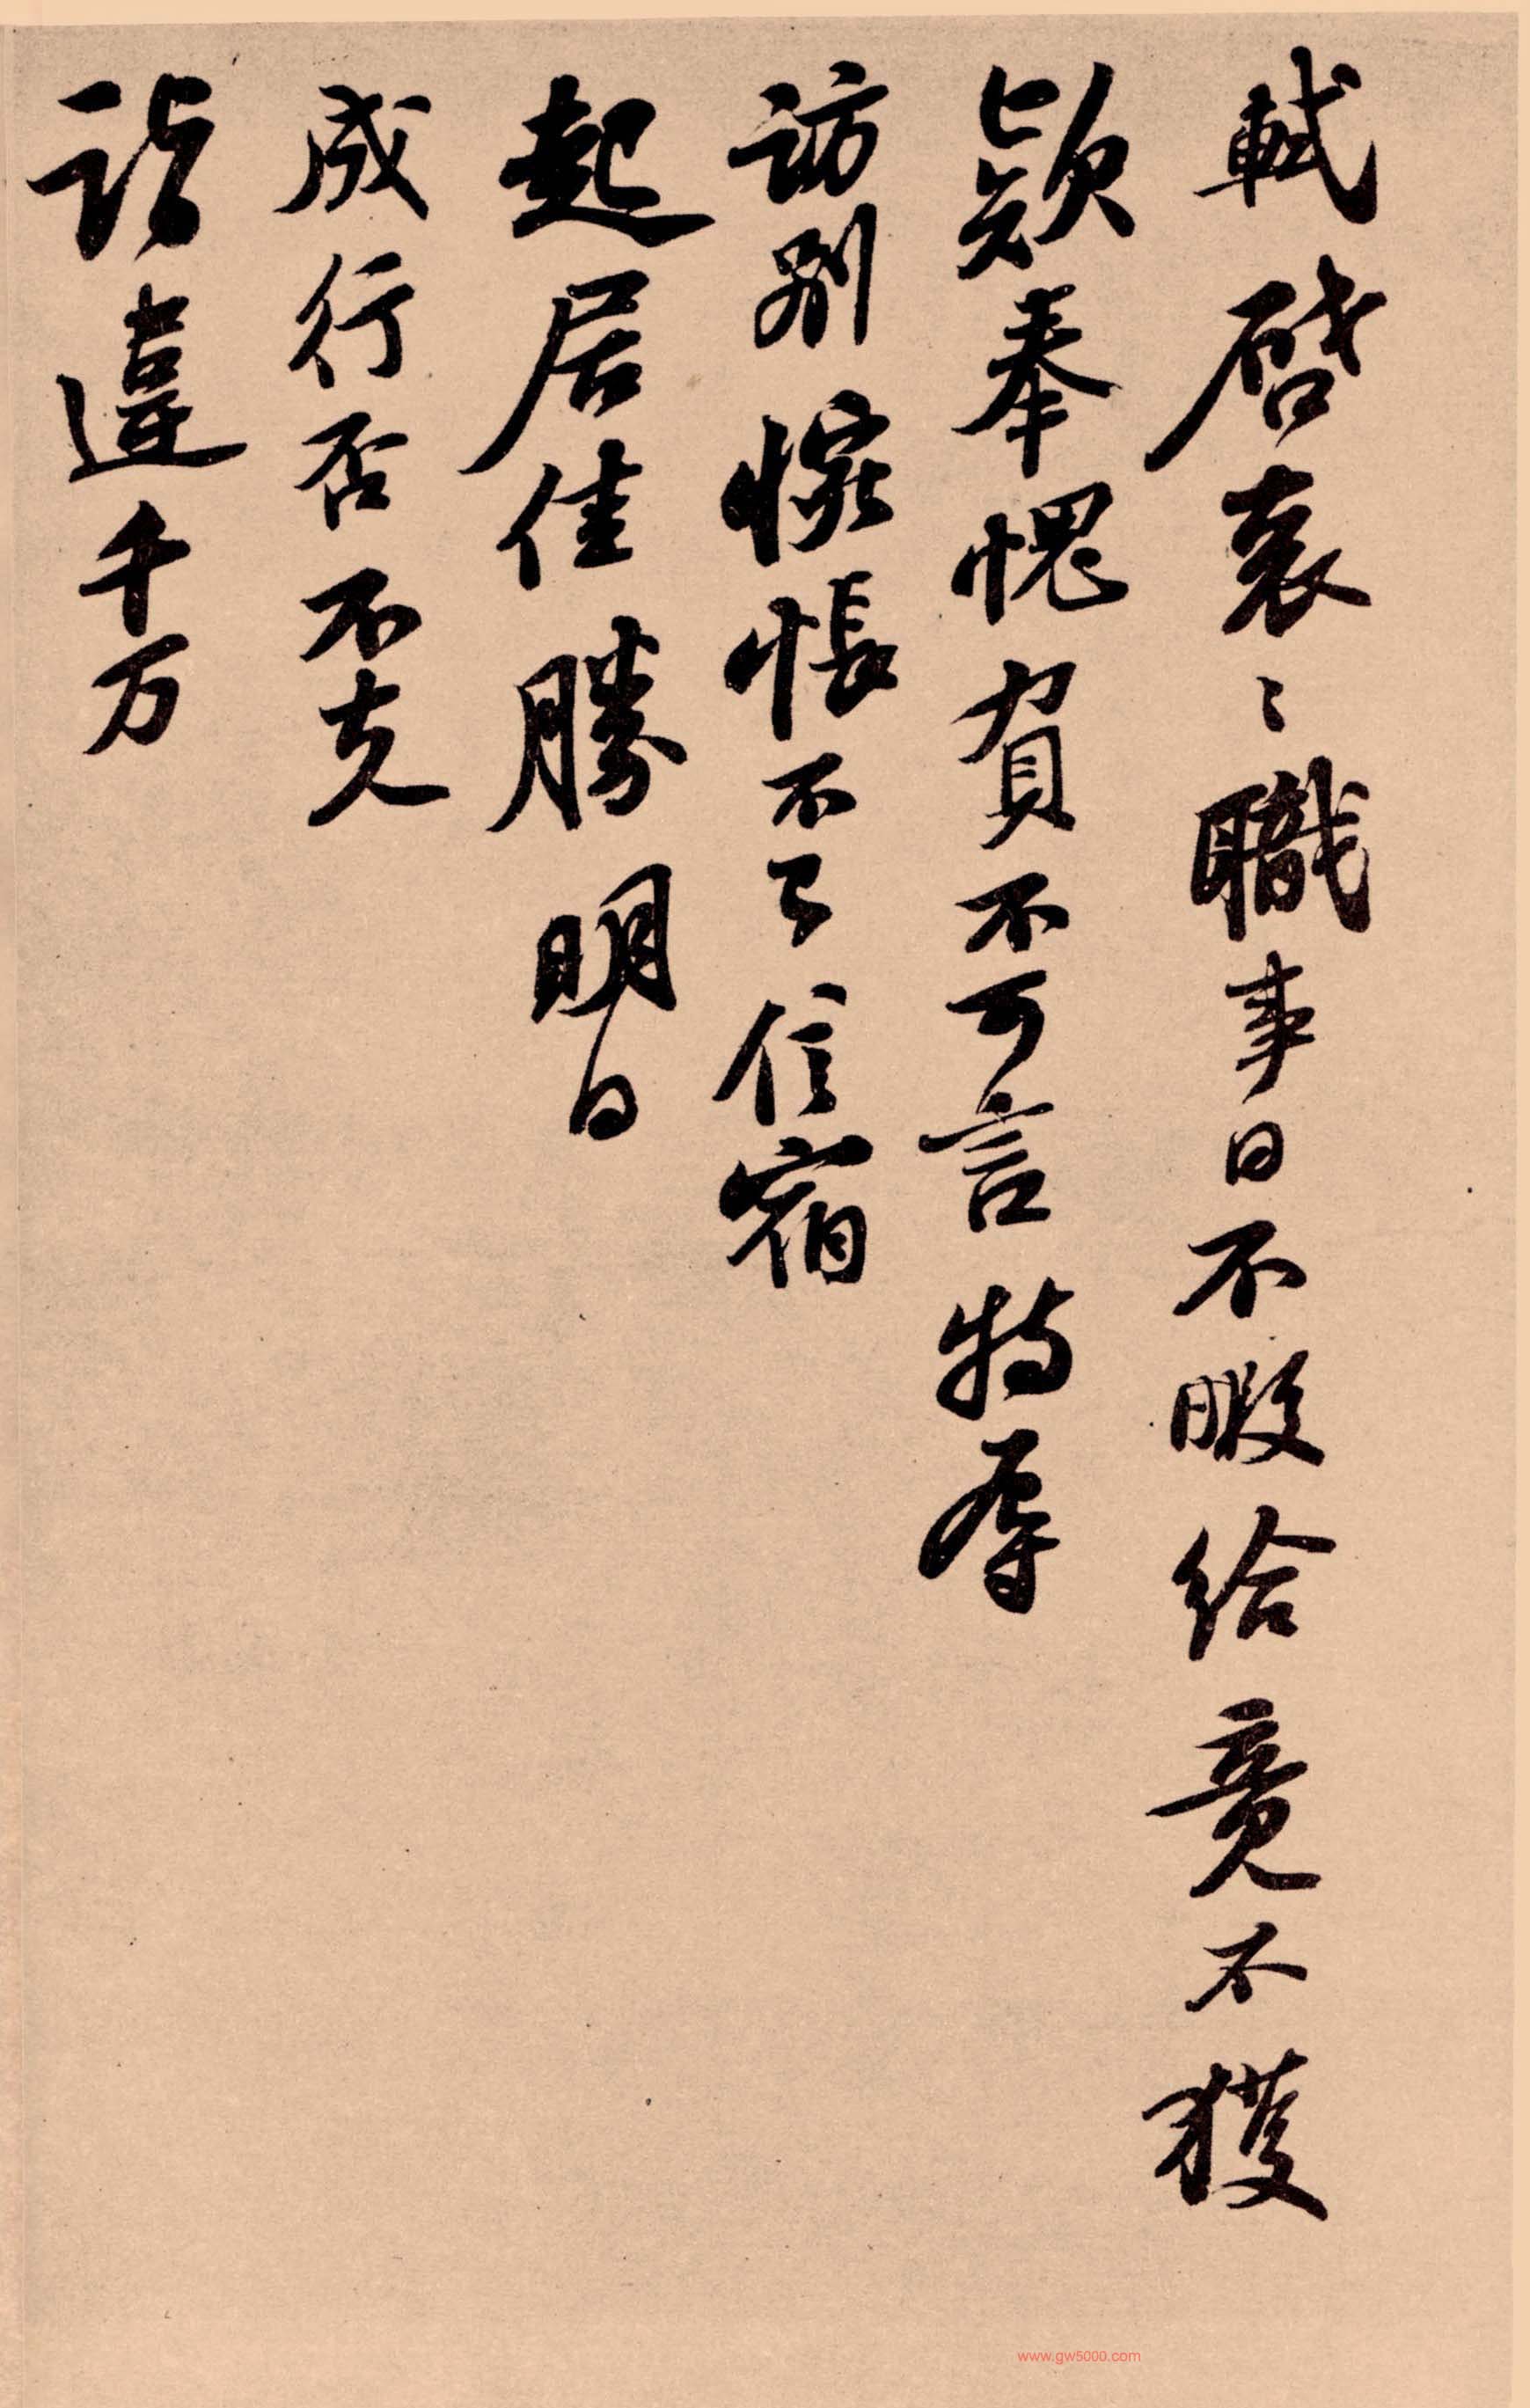 軾啓衰〻職事日不暇給竟不獲
款奉愧負不可言特辱
訪別悵悵不已信宿
起居佳勝明日
成行否不克
詣違千万
www.gw5000.com